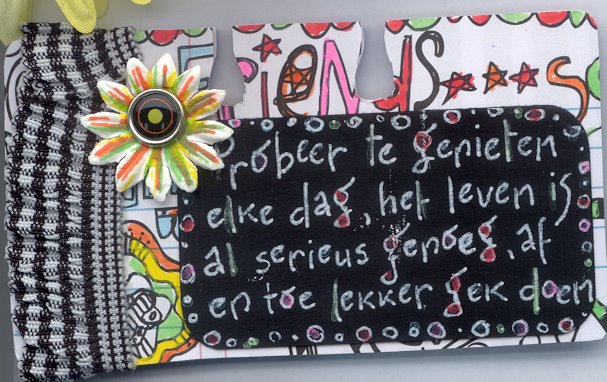 FRiENdS
Probeer te genieten
elke dag, het leven is
al serieus genoeg, af
en toe lekker gek doen